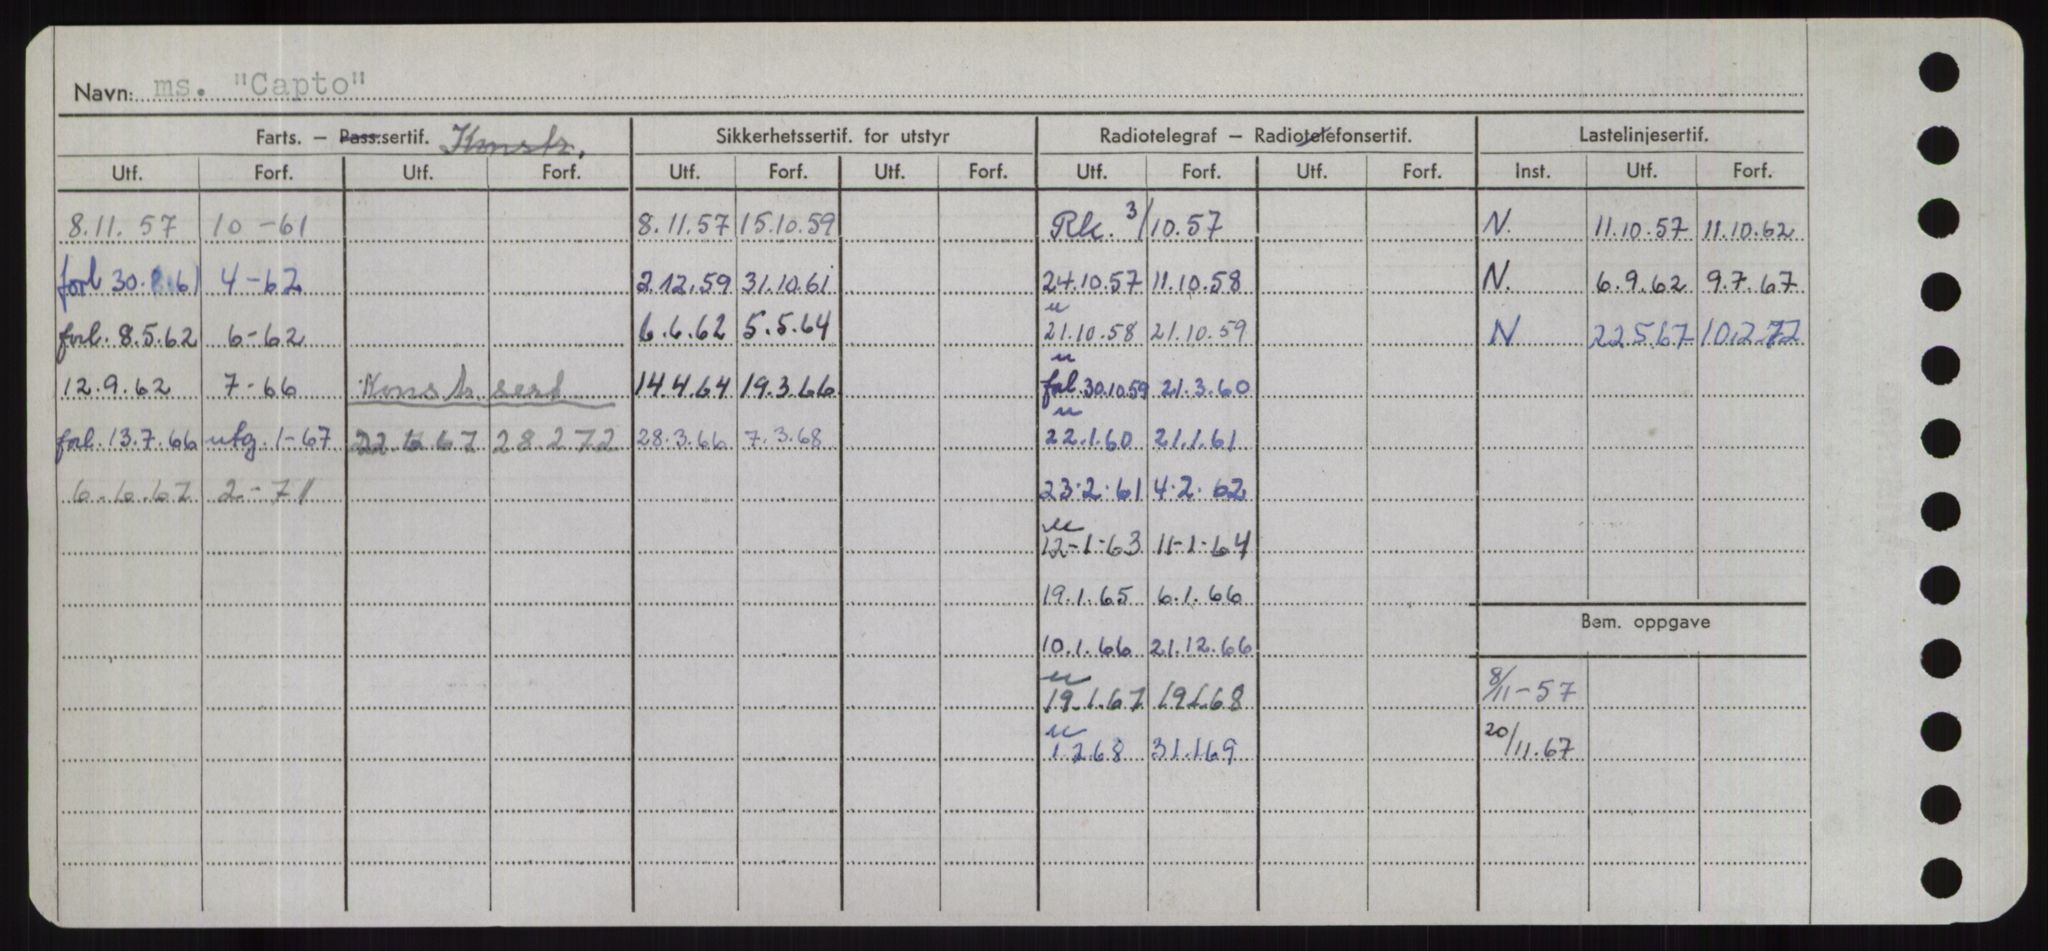 Navn: ms. "Capto"
Farts. – Pass.sertif. Konstr. Sikkerhetssertif. for utstyr Radiotelegraf – Radiotelefonsertif. Lastelinjesertif.
Utf. Forf. Utf. Forf. Utf. Forf. Utf. Forf. Utf. Forf. Utf. Forf. Inst. Utf. Forf.
8.11.57 10-61 8.11.57 15.10.59 Rk. 3/10.57 N. 11.10.57 11.10.62
forl 30.8.61 4-62 2.12.59 31.10.61 24.10.57 11.10.58 N. 6.9.62 9.7.67
forl. 8.5.62 6-62 6.6.62 5.5.64 u 21.10.58 21.10.59 N 22.5.67 10.2.72
12.9.62 7-66 Konstr. sert 14.4.64 19.3.66 u forl. 30.10.59 21.3.60
forl. 13.7.66 utg. 1-67 22.6.67 28.2.72 28.3.66 7.3.68 u 22.1.60 21.1.61
6.6.67 2-71 23.2.61 4.2.62
u 12-1-63 11-1-64
19.1.65 6.1.66
Bem. oppgave
10.1.66 21.12.66
u 19.1.67 19.1.68 8/11-57
u 1.2.68 31.1.69 20/11.67